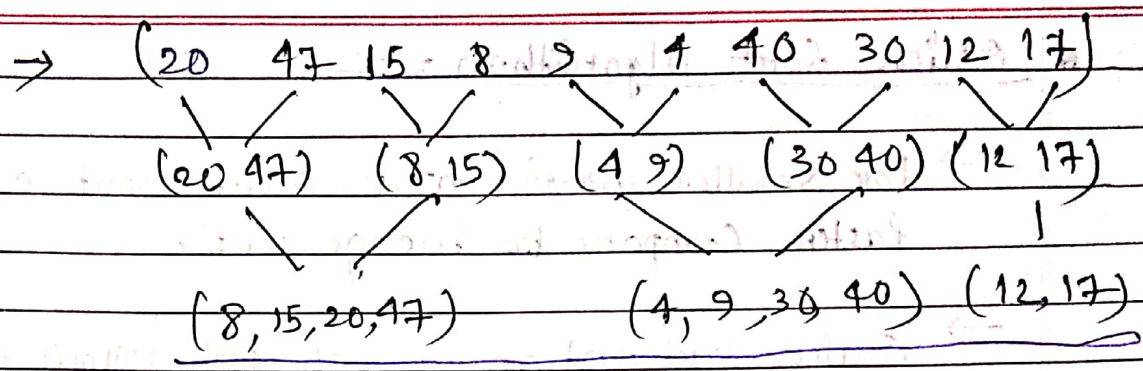 → (20 47 15 8 9 4 40 30 12 17)
(20 47) (8 15) (4 9) (30 40) (12 17)
(8, 15, 20, 47) (4, 9, 30, 40) (12, 17)